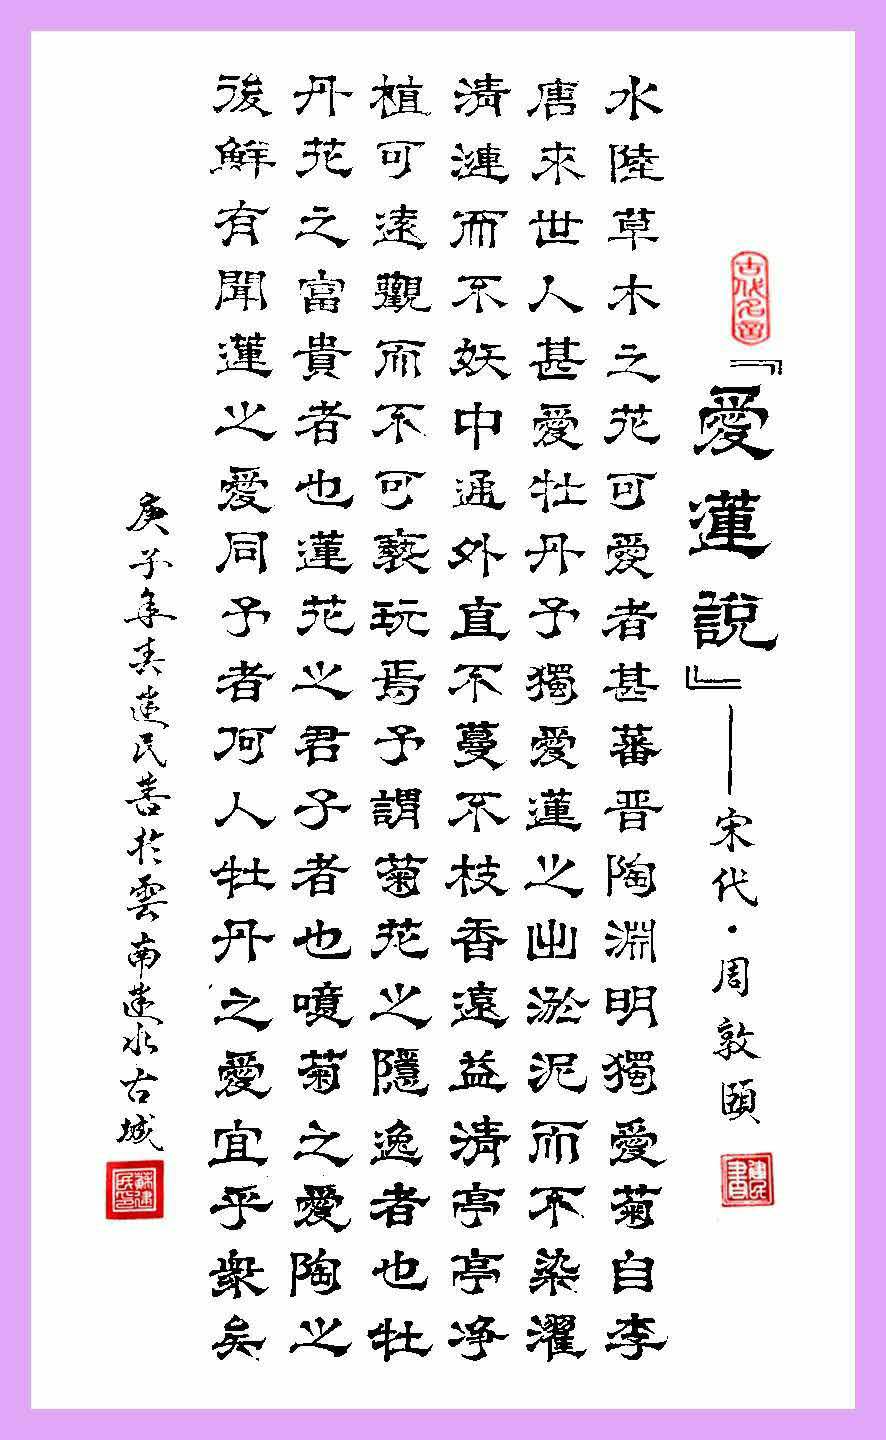 『愛蓮說』——宋代·周敦頤
建民書
水陸草木之花可愛者甚蕃晋陶淵明獨愛菊自李
唐來世人甚愛牡丹予獨愛蓮之出淤泥而不染濯
清漣而不妖中通外直不蔓不枝香遠益清亭亭净
植可遠觀而不可褻玩焉予謂菊花之隱逸者也牡
丹花之富貴者也蓮花之君子者也噴菊之愛陶之
後鮮有聞蓮之愛同予者何人牡丹之愛宜乎衆矣
庚子年春建民書於雲南建水古城
蘇建民印